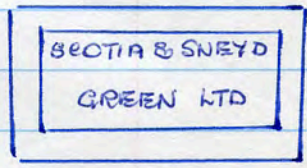 SCOTIA & SNEYD
GREEN LTD